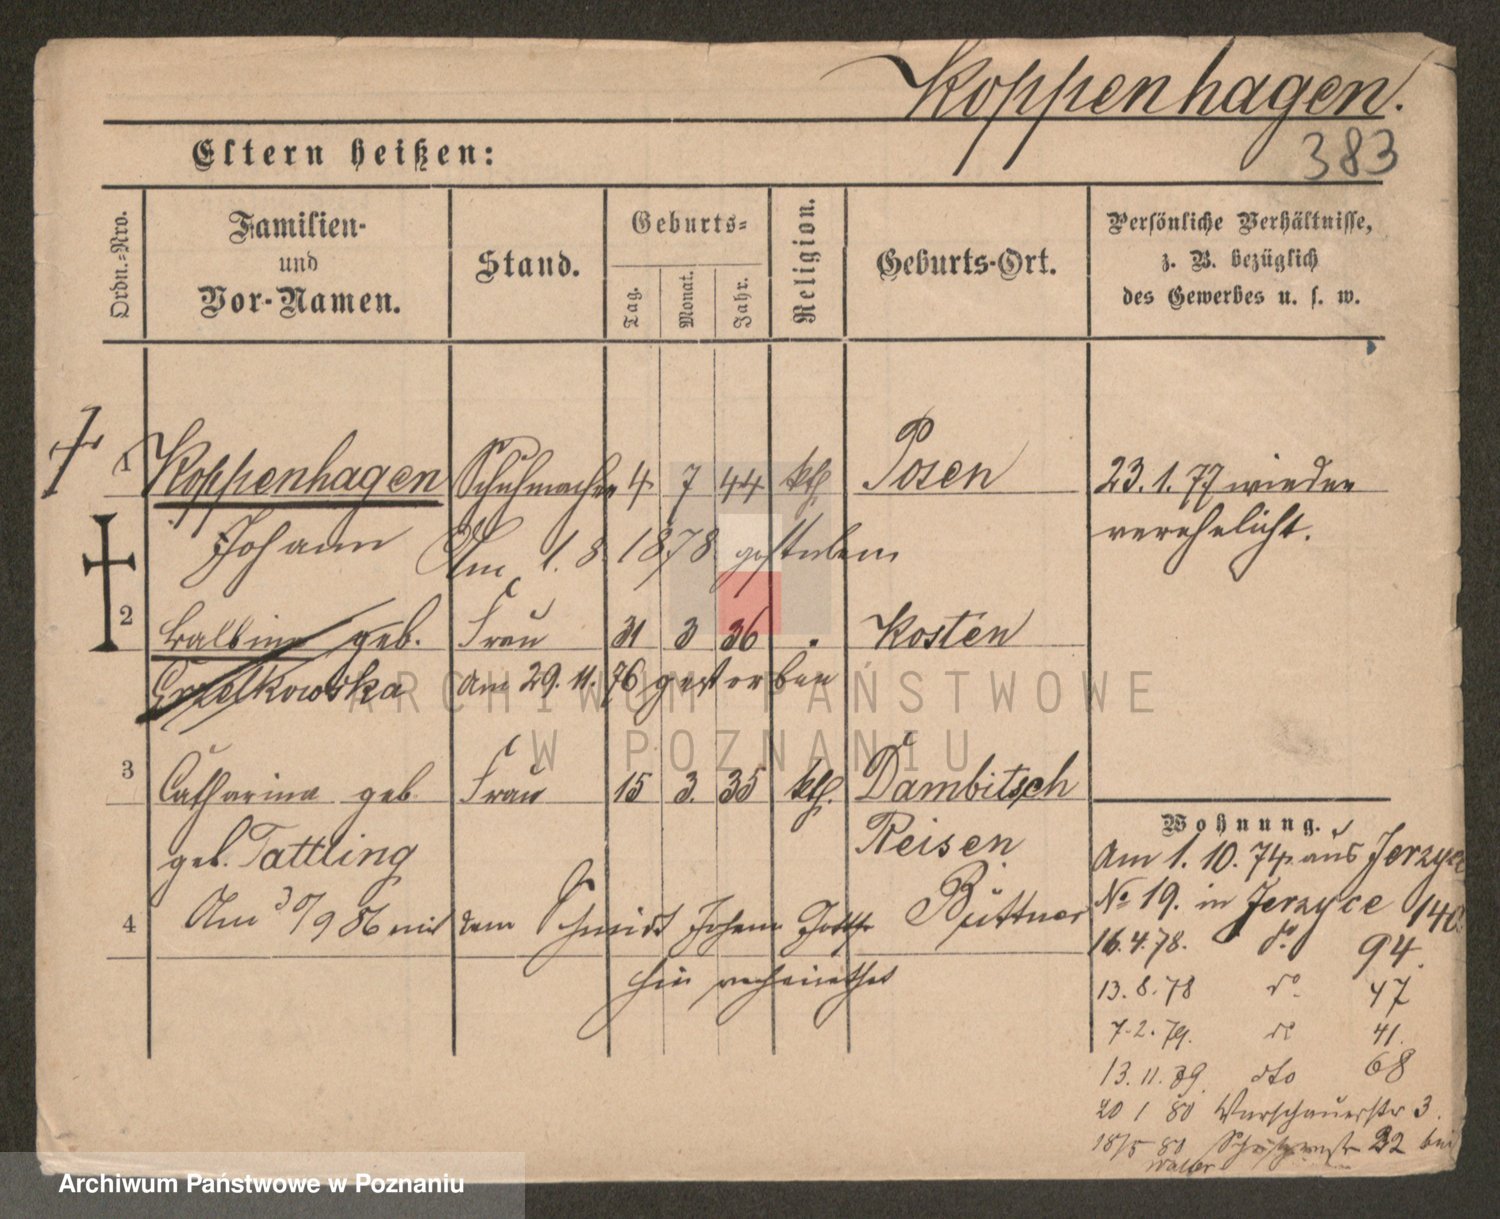 Koppenhagen.
383
Eltern heißen:
Ordn.-Nro.
Familien-
und
Vor-Namen.
Stand.
Geburts-
Tag.
Monat.
Jahr.
Religion.
Geburts-Ort.
Persönliche Verhältnisse,
z. B. bezüglich
des Gewerbes u. s. w.
1 Koppenhagen Schuhmacher 4 7 44 kth Posen 23.1.77 wieder
Johann Am 1. 8. 1878 gestorben verehelicht.
2 Balbina geb. Frau 31 3 36 Kosten
Grzelkowska Am 29. 11. 76 gestorben
3 Catharina geb Frau 15 3. 35 kth. Dambitsch
geb. Tattling Reisen
4 Am 30/9 86 mit dem Schmidt Johann Büttner
hier verheirathet
Wohnung.
Am 1. 10. 74 aus Jerzyce
No 19. in Jerzyce 140
16.4.78. do 94.
13.8.78 do 47
7.2.79. do 41.
13.11.79. dto 68
20 1 80 Warschauerstr 3.
18/5 80 32 bei
ARCHIWUM PAŃSTWOWE
W POZNANIU
Archiwum Państwowe w Poznaniu